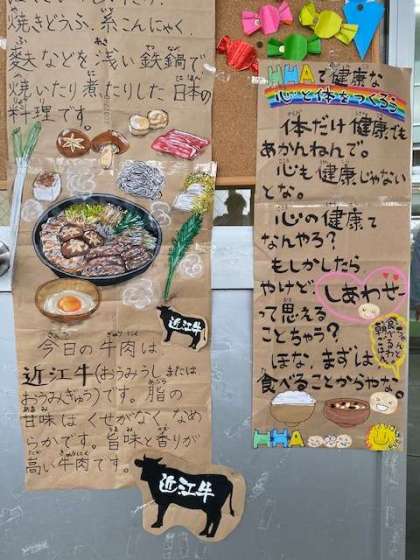 焼きどうふ、糸こんにゃく、
麩などを浅い鉄鍋で
焼いたり煮たりした日本の
料理です。
近江牛
今日の牛肉は、
近江牛(おうみうしまたは
おうみぎゅう)です。脂の
甘味はくせがなくなめ
らかです。旨味と香りが
高い牛肉です。
近江牛
HHAで健康な
心と体をつくろう
体だけ健康でも
あかんねんで。
心も健康じゃない
とな。
心の健康て
なんやろ?
もしかしたら
やけど しあわせ
って思える
ことちゃう?
ほな、まずは
食べることからやな。
HHA